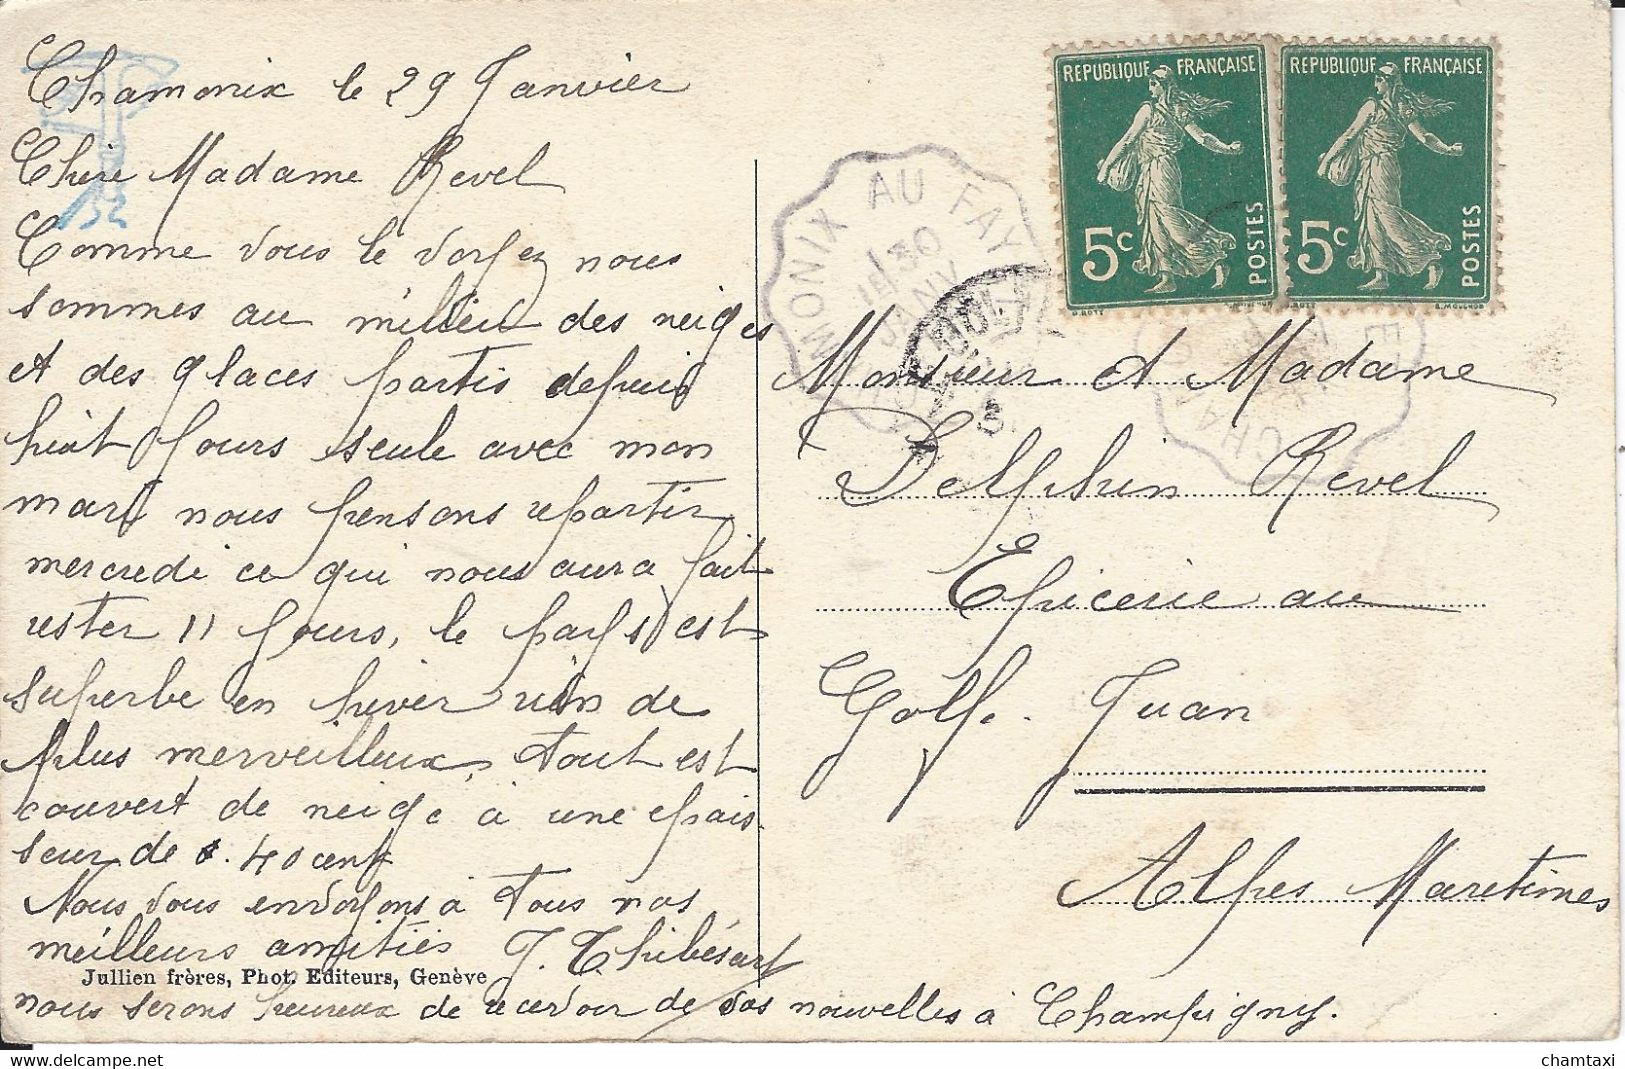 Chamonix le 29 Janvier
Chère Madame Revel
Comme vous le voyez nous
sommes au milieu des neiges
et des glaces partis depuis
huit jours seule avec mon
mari nous pensons repartir
mercredi ce qui nous aura fait
rester 11 jours, le pays est
superbe en hiver rien de
plus merveilleux, tout est
couvert de neige à une épais
seur de 1.40 cent
Nous vous envoyons à tous nos
meilleurs amitiés J. Thibésart
Jullien frères, Phot. Editeurs, Genève
nous serons heureux de recevoir de vos nouvelles à Champigny.
132
REPUBLIQUE FRANÇAISE
5c POSTES
REPUBLIQUE FRANÇAISE
5c POSTES
CHAMONIX AU FAY
30
JANV
Monsieur et Madame
Delphin Revel
Epicerie au
Golfe. Juan
Alpes Maritimes
chamtaxi